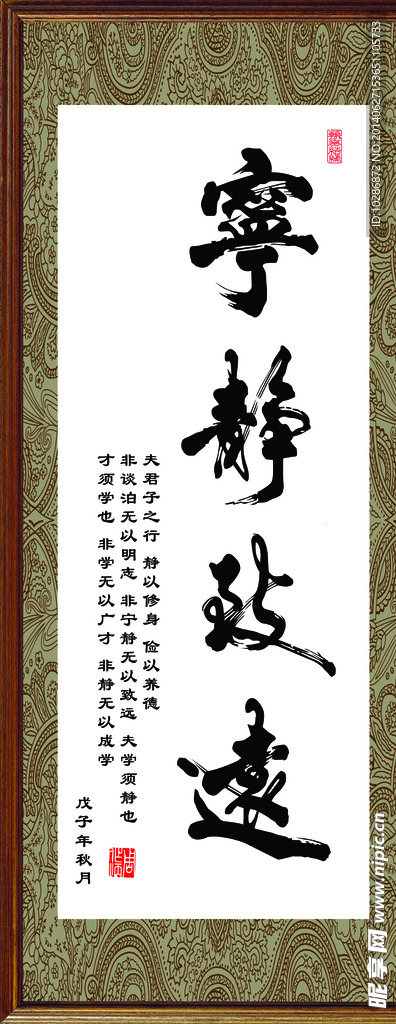 寧靜致遠
夫君子之行 静以修身 俭以养德
非谈泊无以明志 非宁静无以致远 夫学须静也
才须学也 非学无以广才 非静无以成学
戊子年秋月
ID:10286872 NO:20140627153651105733
昵享网 www.nipic.cn